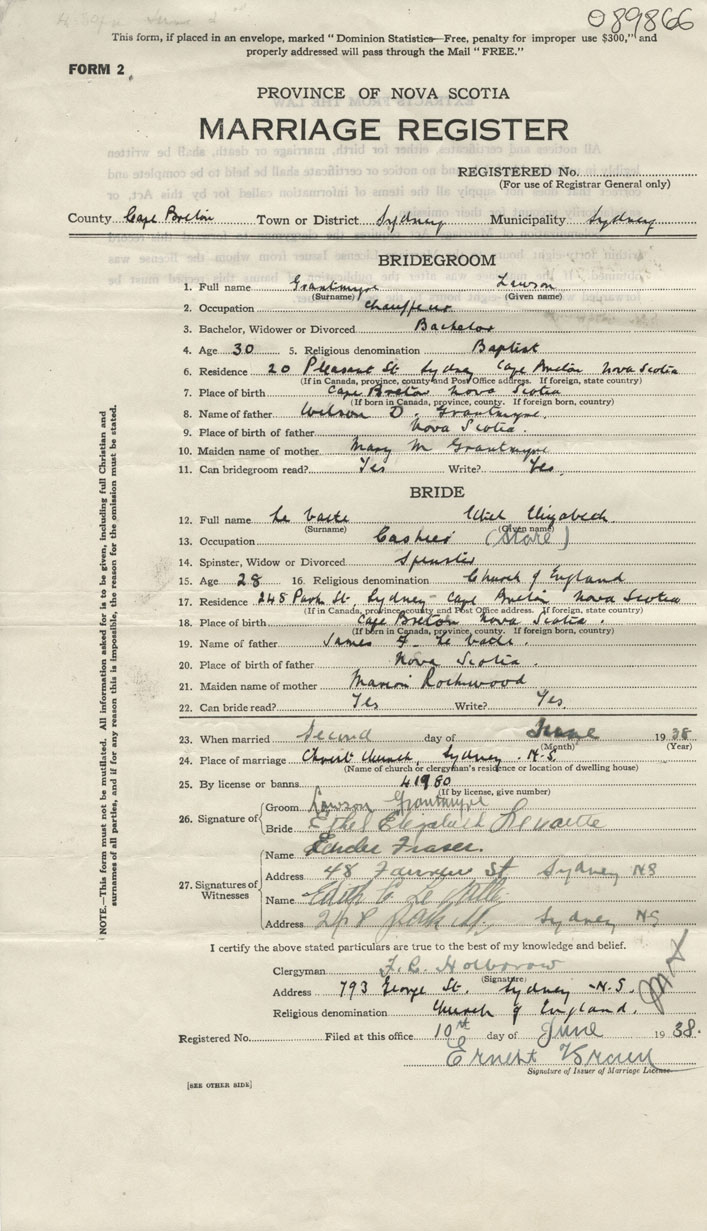 089866
This form, if placed in an envelope, marked "Dominion Statistics—Free, penalty for improper use $300," and
properly addressed will pass through the Mail "FREE."
FORM 2
PROVINCE OF NOVA SCOTIA
MARRIAGE REGISTER
REGISTERED No.
(For use of Registrar General only)
County Cape Breton Town or District Sydney Municipality Sydney
BRIDEGROOM
1. Full name Grantmyre Lawson
(Surname) (Given name)
2. Occupation Chauffeur
3. Bachelor, Widower or Divorced Bachelor
4. Age 30 5. Religious denomination Baptist
6. Residence 20 Pleasant St. Sydney Cape Breton Nova Scotia
(If in Canada, province, county and Post Office address. If foreign, state country)
7. Place of birth Cape Breton Nova Scotia
(If born in Canada, province, county. If foreign born, country)
8. Name of father Wilson D. Grantmyre.
9. Place of birth of father Nova Scotia.
10. Maiden name of mother Mary M Grantmyre
11. Can bridegroom read? Yes Write? Yes.
BRIDE
12. Full name Le Vatte Ethel Elizabeth
(Surname) (Given name)
13. Occupation Cashier (Store)
14. Spinster, Widow or Divorced Spinster
15. Age 28 16. Religious denomination Church of England
17. Residence 248 Park St, Sydney - Cape Breton Nova Scotia
(If in Canada, province, county and Post Office address. If foreign, state country)
18. Place of birth Cape Breton Nova Scotia.
(If born in Canada, province, county. If foreign born, country)
19. Name of father James Le Vatte.
20. Place of birth of father Nova Scotia.
21. Maiden name of mother Marion Rockwood
22. Can bride read? Yes Write? Yes.
23. When married Second day of June 1938
(Month) (Year)
24. Place of marriage Christ Church, Sydney N.S.
(Name of church or clergyman's residence or location of dwelling house)
25. By license or banns 41980
(If by license, give number)
26. Signature of
Groom Lawson Grantmyre
Bride Ethel Elizabeth Levatte
27. Signatures of Witnesses
Name Fraser.
Address 48 St Sydney NS
Name Edith Le Vatte
Address 248 Park St. Sydney NS
I certify the above stated particulars are true to the best of my knowledge and belief.
Clergyman Holborow
(Signature)
Address 793 George St. Sydney - N.S.
Religious denomination Church of England.
Registered No. Filed at this office 10 day of June 1938.
Ernest
Signature of Issuer of Marriage License
[SEE OTHER SIDE]
NOTE.—This form must not be mutilated. All information asked for is to be given, including full Christian and
surnames of all parties, and if for any reason this is impossible, the reason for the omission must be stated.